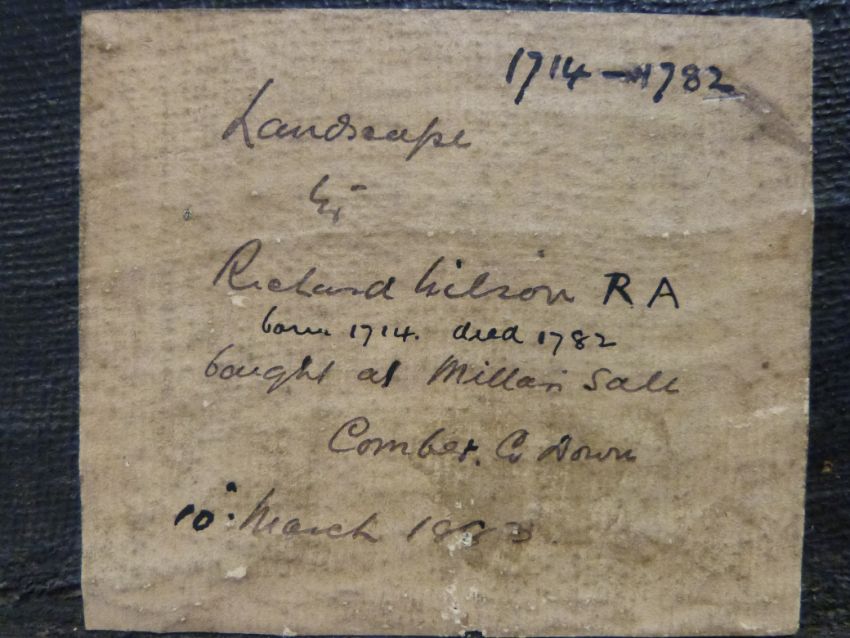 1714 - 1782
Landscape
by
Richard Wilson RA
born 1714. died 1782
bought at Millars Sale
Comber. Co Down
10th March 1883